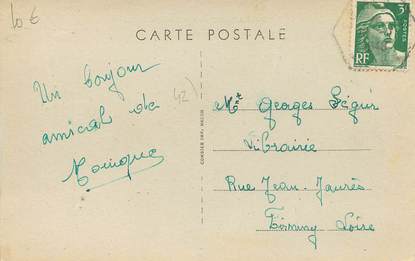 10 €
CARTE POSTALE
3F
POSTES
RF
Un bonjour
amical de
42
COMBIER IMP. MACON
Mme Georges Ségur
Librairie
Rue Jean-Jaurès
Firminy Loire